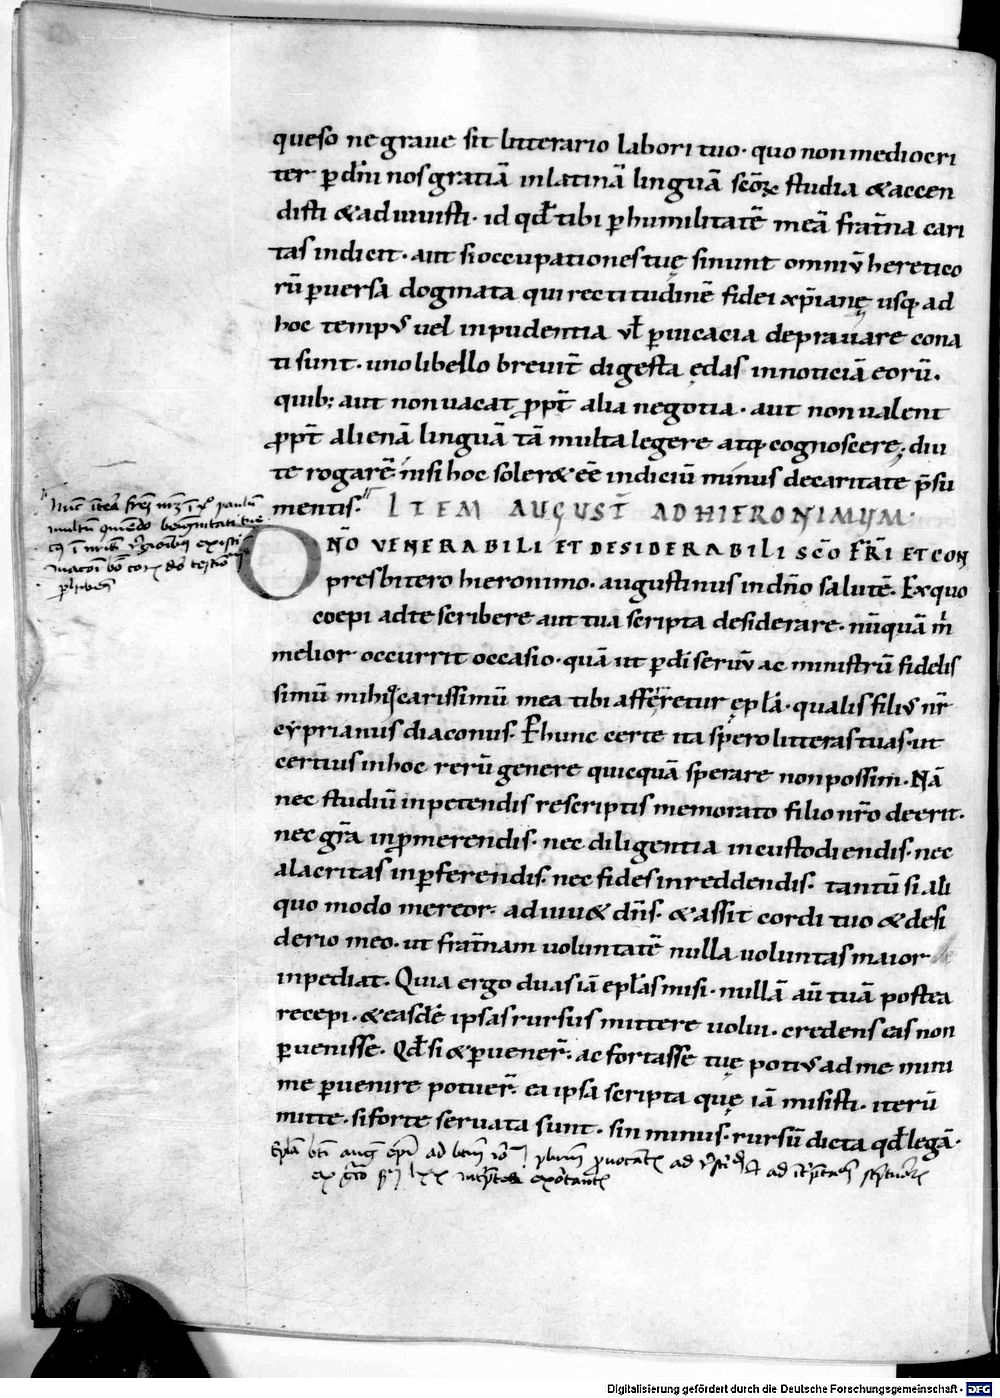 queso ne graue sit litterario labori tuo· quo non mediocri
ter ꝑ dñi nos gratiā in latinā linguā scōꝝ studia & accen
disti & adiuuisti· id qđ tibi ꝑ humilitatē meā frat̄na cari
tas indicit· aut si occupationes tuę sinunt omniū heretico
rū ꝑuersa dogmata qui rectitudinē fidei xp̄ianę usq; ad
hoc tempus uel inpudentia ul̄ ꝑuicacia deprauare cona
ti sunt· uno libello breuit̄ digesta ędas in noticiā eorū·
quib; aut non uacat ꝓpt̄ alia negotia· aut non ualent
ꝓpt̄ alienā linguā tā multa legere atq; cognoscere; diu
te rogarē nisi hoc soler& eē indiciū minus de caritate p̄su
mentis· ITEM AUGUST̄ AD HIERONIMUM·
DÑO VENERABILI ET DESIDERABILI SCŌ FR̄I ET CON
presbitero hieronimo· augustinus in dño salutē· Ex quo
coepi ad te scribere aut tua scripta desiderare· nūquā m̄
melior occurrit occasio· quā ut ꝑ dī seruū ac ministrū fidelis
simū mihiq; carissimū mea tibi afferretur ępl̄a· qualis filius nr̄
cyprianus diaconus· P hunc certe ita spero litteras tuas· ut
certius in hoc rerū genere quicquā sperare non possim· Nā
nec studiū in petendis rescriptis memorato filio nr̄o deerit·
nec gr̄a in ꝓmerendis· nec diligentia in custodiendis· nec
alacritas in ꝑferendis· nec fides in reddendis· tantū si ali
quo modo mereor· adiuu& dñs· & assit cordi tuo & desi
derio meo· ut frat̄nam uoluntatē nulla uoluntas maior
inpediat· Quia ergo duas iā epl̄as misi· nullā aū tuā postea
recepi· & easdē ipsas rursus mittere uolui· credens eas non
ꝑuenisse· Qđ si & ꝑuener̄· ac fortasse tuę potius ad me mini
me ꝑuenire potuer̄· ea ipsa scripta quę iā misisti· iterū
mitte· si forte seruata sunt· sin minus· rursū dicta qđ legā·
Digitalisierung gefördert durch die Deutsche Forschungsgemeinschaft - DFG